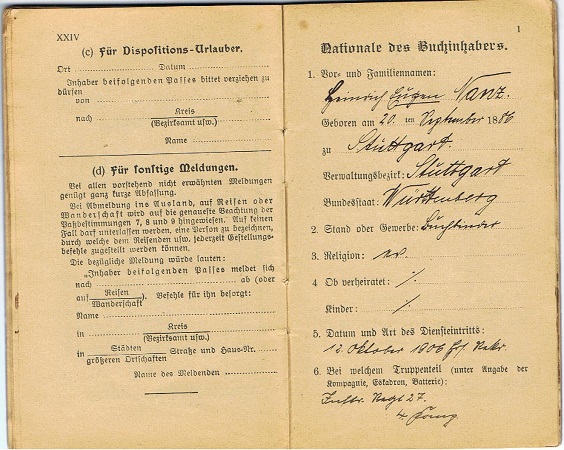 XXIV
(c) Für Dispositions-Urlauber.
Ort Datum
Inhaber beifolgenden Passes bittet verziehen zu
dürfen
von
nach Kreis
(Bezirksamt usw.)
Name
(d) Für sonstige Meldungen.
Bei allen vorstehend nicht erwähnten Meldungen
genügt ganz kurze Abfassung.
Bei Abmeldung ins Ausland, auf Reisen oder
Wanderschaft wird auf die genaueste Beachtung der
Paßbestimmungen 7, 8 und 9 hingewiesen. Auf keinen
Fall darf unterlassen werden, eine Person zu bezeichnen,
durch welche dem Reisenden usw. jederzeit Gestellungs-
befehle zugestellt werden können.
Die bezügliche Meldung würde lauten:
„Inhaber beifolgenden Passes meldet sich
nach ab (oder
auf Reisen
Wanderschaft). Befehle für ihn besorgt:
Name
in Kreis
(Bezirksamt usw.)
in Städten
größeren Ortschaften Straße und Haus-Nr.
Name des Meldenden
1
Nationale des Buchinhabers.
1. Vor- und Familiennamen:
Heinrich Eugen Nanz.
Geboren am 20. ten September 1886
zu Stuttgart.
Verwaltungsbezirk: Stuttgart
Bundesstaat: Württemberg
2. Stand oder Gewerbe: Buchbinder
3. Religion: ev.
4. Ob verheiratet: ⁒
Kinder: ⁒
5. Datum und Art des Diensteintritts:
12. Oktober 1906 Rekr.
6. Bei welchem Truppenteil (unter Angabe der
Kompagnie, Eskadron, Batterie):
Regt 27.
4. Comp